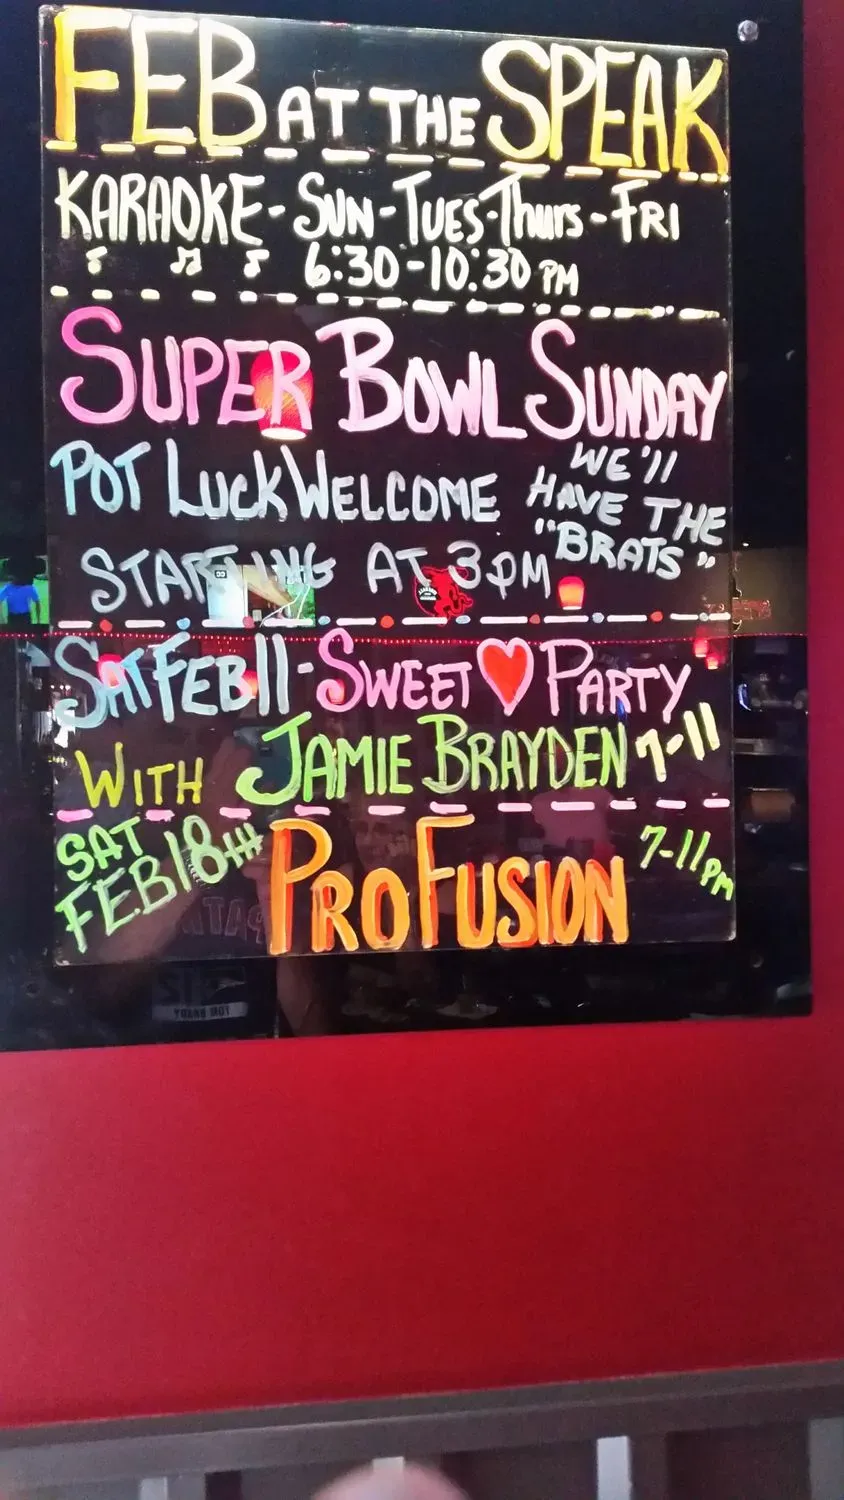 FEB AT THE SPEAK
KARAOKE - SUN - TUES - Thurs - FRI
6:30 - 10:30 PM
SUPER BOWL SUNDAY
POT LUCK WELCOME
WE'll
HAVE THE
"BRATS"
STARTING AT 3PM
SAT FEB 11 - SWEET ♥ PARTY
WITH JAMIE BRAYDEN 7-11
SAT
FEB 18TH
PROFUSION
7-11PM